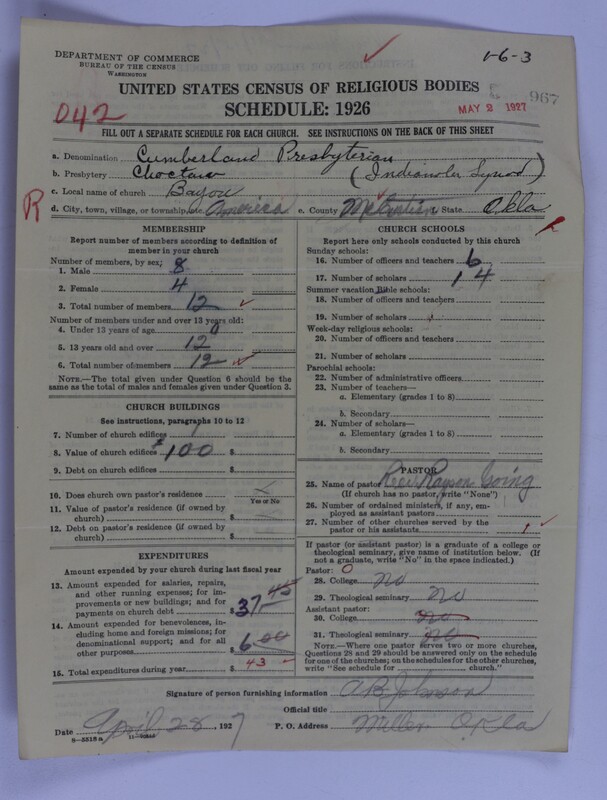 DEPARTMENT OF COMMERCE
BUREAU OF THE CENSUS
WASHINGTON
1-6-3
UNITED STATES CENSUS OF RELIGIOUS BODIES
SCHEDULE: 1926
042
MAY 2 1927
967
FILL OUT A SEPARATE SCHEDULE FOR EACH CHURCH. SEE INSTRUCTIONS ON THE BACK OF THIS SHEET
a. Denomination Cumberland Presbyterian
b. Presbytery Choctaw (Indianola Synod)
c. Local name of church Bayou
R
d. City, town, village, or township, etc. America e. County McCurtain State Okla
MEMBERSHIP
Report number of members according to definition of member in your church
Number of members, by sex:
1. Male 8
2. Female 4
3. Total number of members 12
Number of members under and over 13 years old:
4. Under 13 years of age 0
5. 13 years old and over 12
6. Total number of members 12
NOTE.—The total given under Question 6 should be the same as the total of males and females given under Question 3.
CHURCH BUILDINGS
See instructions, paragraphs 10 to 12
7. Number of church edifices 1
8. Value of church edifices $100 $
9. Debt on church edifices $
10. Does church own pastor's residence X
Yes or No
11. Value of pastor's residence (if owned by church) $
12. Debt on pastor's residence (if owned by church) $
EXPENDITURES
Amount expended by your church during last fiscal year
13. Amount expended for salaries, repairs, and other running expenses; for improvements or new buildings; and for payments on church debt $ 37.45
14. Amount expended for benevolences, including home and foreign missions; for denominational support; and for all other purposes $ 6.00
15. Total expenditures during year $ 43
CHURCH SCHOOLS
Report here only schools conducted by this church
Sunday schools:
16. Number of officers and teachers 6
17. Number of scholars 14
Summer vacation Bible schools:
18. Number of officers and teachers
19. Number of scholars
Week-day religious schools:
20. Number of officers and teachers
21. Number of scholars
Parochial schools:
22. Number of administrative officers
23. Number of teachers—
a. Elementary (grades 1 to 8)
b. Secondary
24. Number of scholars—
a. Elementary (grades 1 to 8)
b. Secondary
PASTOR
25. Name of pastor Rev. Rayson Going
(If church has no pastor, write "None")
26. Number of ordained ministers, if any, employed as assistant pastors
27. Number of other churches served by the pastor or his assistants 1
If pastor (or assistant pastor) is a graduate of a college or theological seminary, give name of institution below. (If not a graduate, write "No" in the space indicated.)
Pastor: 0
28. College no
29. Theological seminary no
Assistant pastor:
30. College no
31. Theological seminary no
NOTE.—Where one pastor serves two or more churches, Questions 28 and 29 should be answered only on the schedule for one of the churches; on the schedules for the other churches, write "See schedule for church."
Signature of person furnishing information A B Johnson
Official title
Date April 28, 1927 P. O. Address Miller Okla
8—5518a